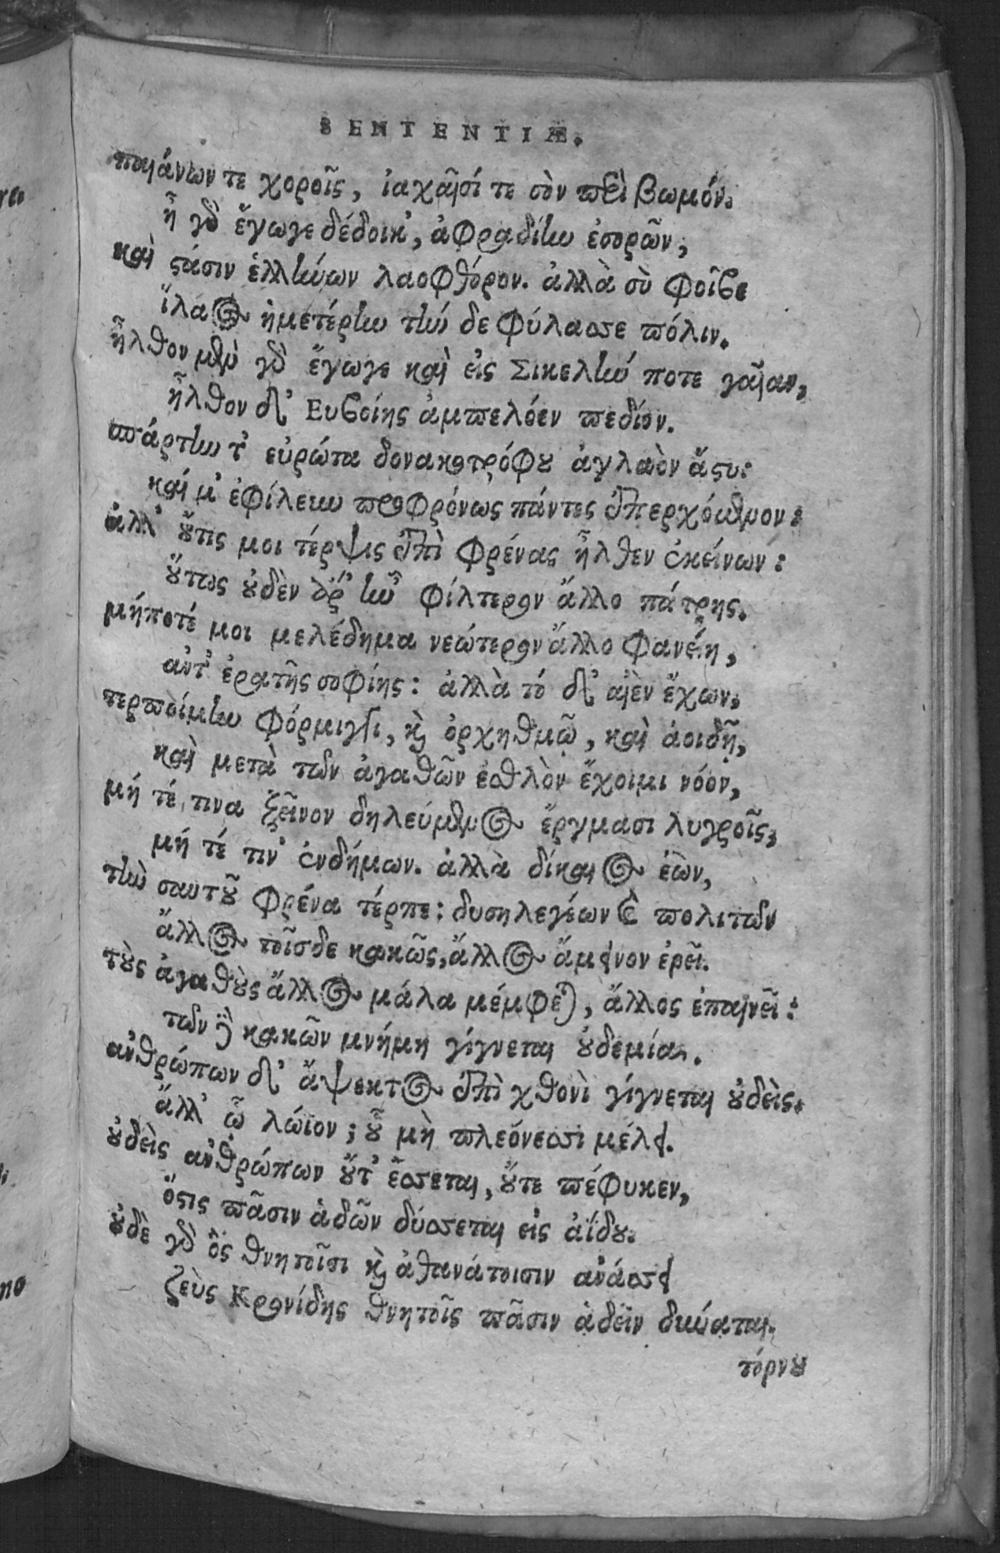 SENTENTIÆ.
παιάνων τε χοροῖς, ἰαχαῖσί τε σὸν περὶ βωμόν.
ἦ γὰρ ἔγωγε δέδοικ', ἀφραδίην ἐσορῶν,
καὶ στάσιν ἑλλήνων λαοφθόρον. ἀλλὰ σὺ φοῖβε
ἵλαος ἡμετέρην τήν δε φύλασσε πόλιν.
ἦλθον μὲν γὰρ ἔγωγε καὶ εἰς Σικελήν ποτε γαῖαν,
ἦλθον δ' Ευβοίης ἀμπελόεν πεδίον.
σπάρτην τ' εὐρώτα δονακοτρόφου ἀγλαὸν ἄστυ:
καί μ' ἐφίλευν προφρόνως πάντες ἐπερχόμενον:
ἀλλ' οὔτις μοι τέρψις ἐπὶ φρένας ἦλθεν ἐκείνων:
οὕτως οὐδὲν ἄρ' ἦν φίλτερον ἄλλο πάτρης.
μήποτέ μοι μελέδημα νεώτερον ἄλλο φανείη,
αὐτ' ἐρατῆς σοφίης: ἀλλὰ τό δ' αἰὲν ἔχων.
τερποίμην φόρμιγγι, καὶ ὀρχηθμῷ, καὶ ἀοιδῇ,
καὶ μετὰ τῶν ἀγαθῶν ἐσθλὸν ἔχοιμι νόον,
μή τέ τινα ξεῖνον δηλεύμενος ἔργμασι λυγροῖς,
μή τέ τιν' ἐνδήμων. ἀλλὰ δίκαιος ἐὼν,
τὴν σαυτοῦ φρένα τέρπε: δυσηλεγέων δὲ πολιτῶν
ἄλλος τοῖσδε κακῶς, ἄλλος ἄμεινον ἐρεῖ.
τοὺς ἀγαθοὺς ἄλλος μάλα μέμφεται, ἄλλος ἐπαινεῖ:
τῶν δὲ κακῶν μνήμη γίγνεται οὐδεμία.
ἀνθρώπων δ' ἄψεκτος ἐπὶ χθονὶ γίγνεται οὐδεὶς.
ἄλλ' ᾧ λώϊον; οὗ μὴ πλεόνεσσι μέλει.
οὐδεὶς ἀνθρώπων οὔτ' ἔσσεται, οὔτε πέφυκεν,
ὅστις πᾶσιν ἁδῶν δύσσεται εἰς ἀΐδου.
οὐδὲ γὰρ ὃς θνητοῖσι καὶ ἀθανάτοισιν ἀνάσσει
ζεὺς Κρονίδης θνητοῖς πᾶσιν ἁδεῖν δύναται.
τόρνου